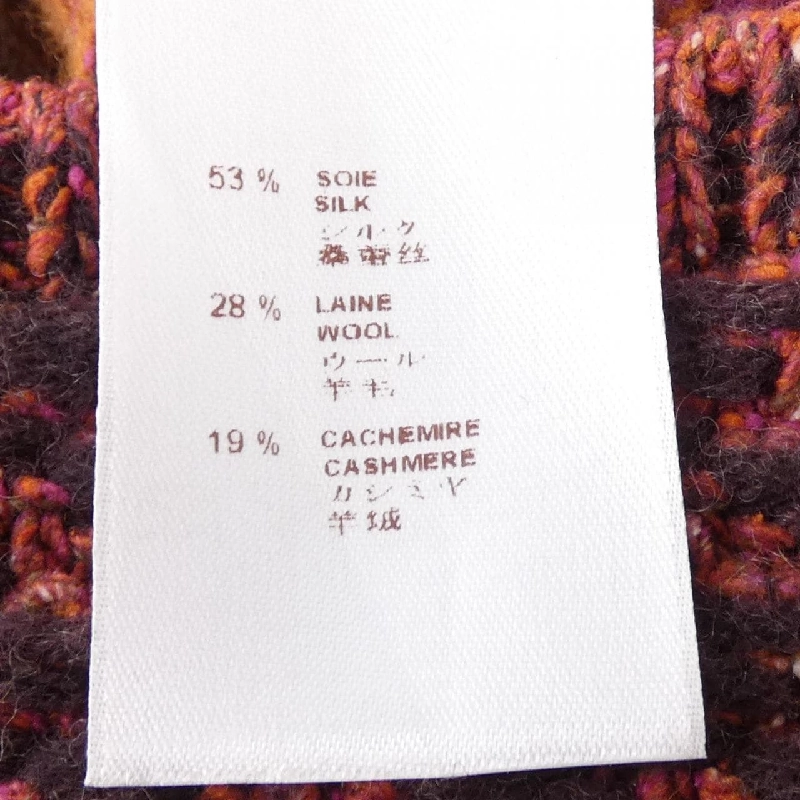 53 % SOIE
SILK
シルク
桑蚕丝
28 % LAINE
WOOL
ウール
羊毛
19 % CACHEMIRE
CASHMERE
カシミヤ
羊绒